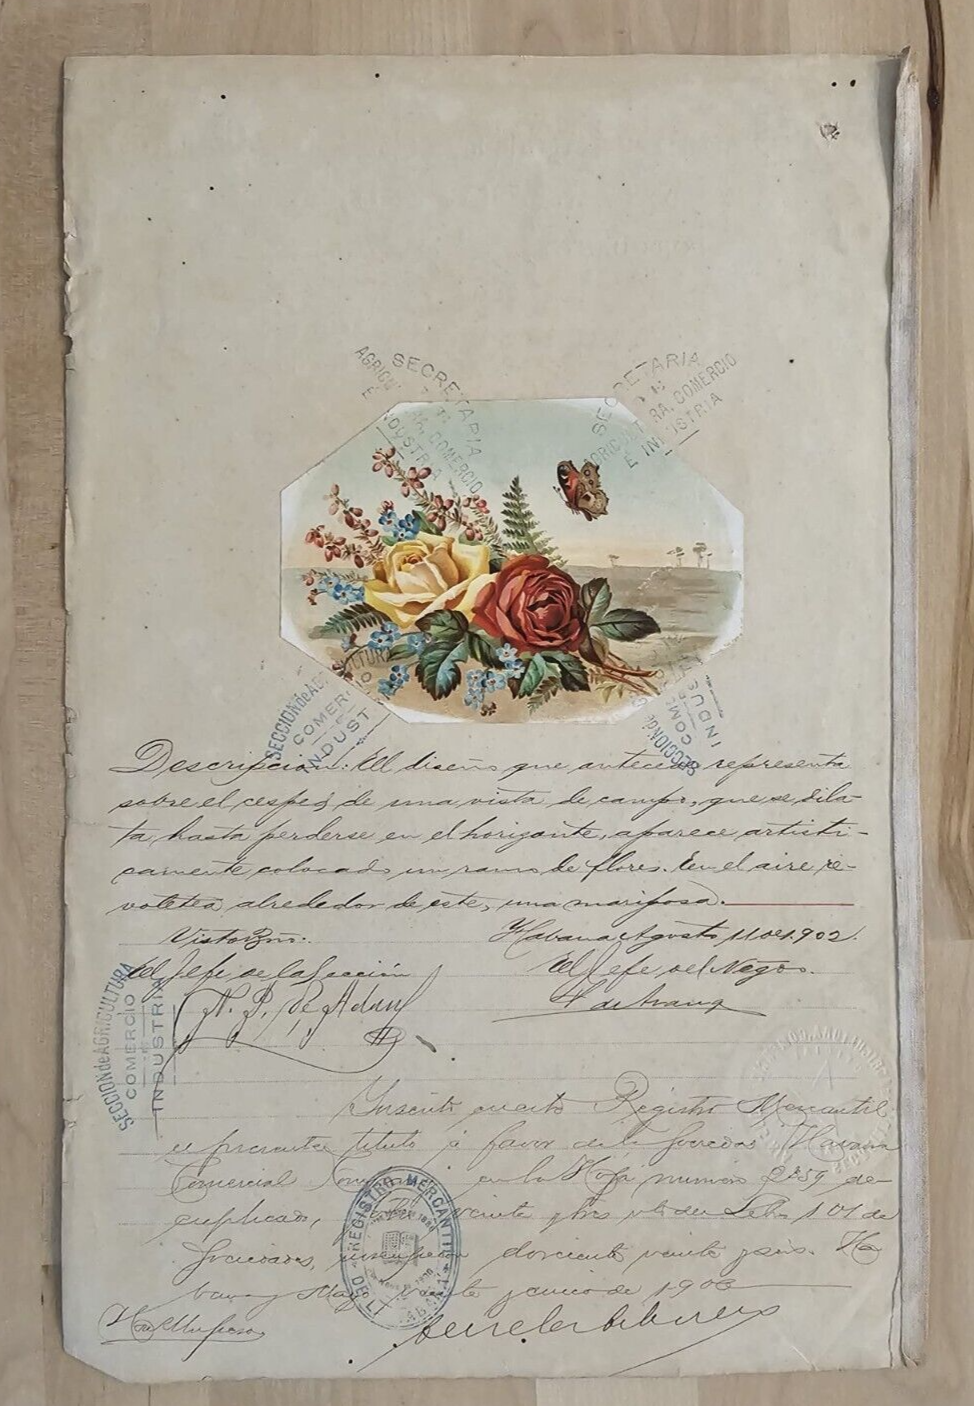 SECRETARIA
AGRICULTURA, COMERCIO
E INDUSTRIA
SECRETARIA
AGRICULTURA, COMERCIO
E INDUSTRIA
SECCION de AGRICULTURA
COMERCIO
INDUSTRIA
SECCION de
COMERCIO
INDUSTRIA
Descripcion: El diseño que antecede representa
sobre el cesped de una vista de campo, que se dila-
ta hasta perderse en el horizonte, aparece artisti-
camente colocado un ramo de flores. En el aire re-
volotea alrededor de este, una mariposa.
Visto Bno:
Habana Agosto 11 de 1.902.
El Jefe de la Sección
El Jefe del Negdo.
SECCION de AGRICULTURA
COMERCIO
INDUSTRIA
Inscrito en este Registro Mercantil
el presente titulo á favor de la Sociedad Havana
Comercial en la Hoja numero du-
plicado, veinte Libro 101 de
Sociedades, inscripcion doscientos veinte y seis. Ha-
bana y veinte junio de 1903
REGISTRO MERCANTIL